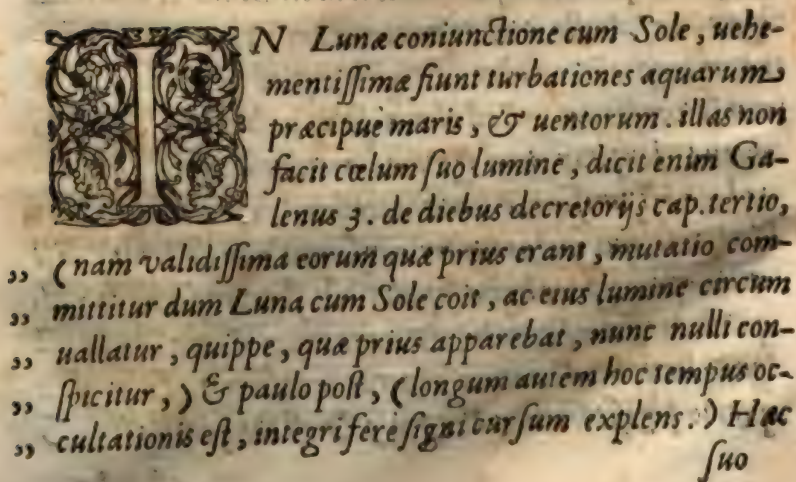 IN Lunæ coniunctione cum Sole, uehe-
mentissimæ fiunt turbationes aquarum
præcipuè maris, & uentorum. illas non
facit cœlum suo lumine, dicit enim Ga-
lenus 3. de diebus decretorijs cap. tertio,
„ (nam validissima eorum quæ prius erant, mutatio com-
„ mittitur dum Luna cum Sole coit, ac eius lumine circum
„ uallatur, quippe, quæ prius apparebat, nunc nulli con-
„ spicitur,) & paulo post, (longum autem hoc tempus oc-
„ cultationis est, integri ferè signi cursum explens.) Hæc
suo